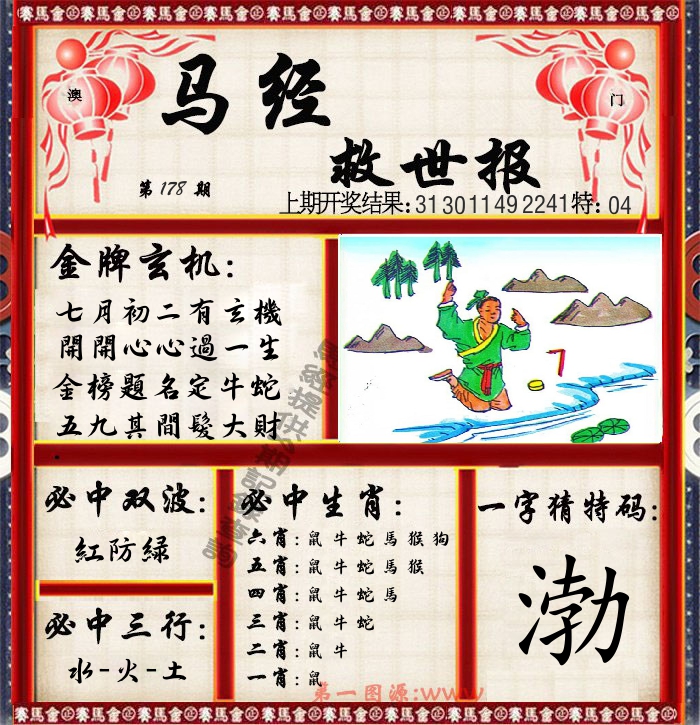 賽馬會 賽馬會 賽馬會 賽馬會 賽馬會 賽馬會 賽馬會 賽馬會 賽馬會
澳
门
马经
救世报
第178期
上期开奖结果:31 30 11 49 22 41 特:04
金牌玄机:
七月初二有玄機
開開心心過一生
金榜題名定牛蛇
五九其間髮大財
7
必中双波:
紅防綠
必中三行:
水-火-土
必中生肖:
六肖:鼠牛蛇馬猴狗
五肖:鼠牛蛇馬猴
四肖:鼠牛蛇馬
三肖:鼠牛蛇
二肖:鼠牛
一肖:鼠
一字猜特码:
渤
第一图源:www